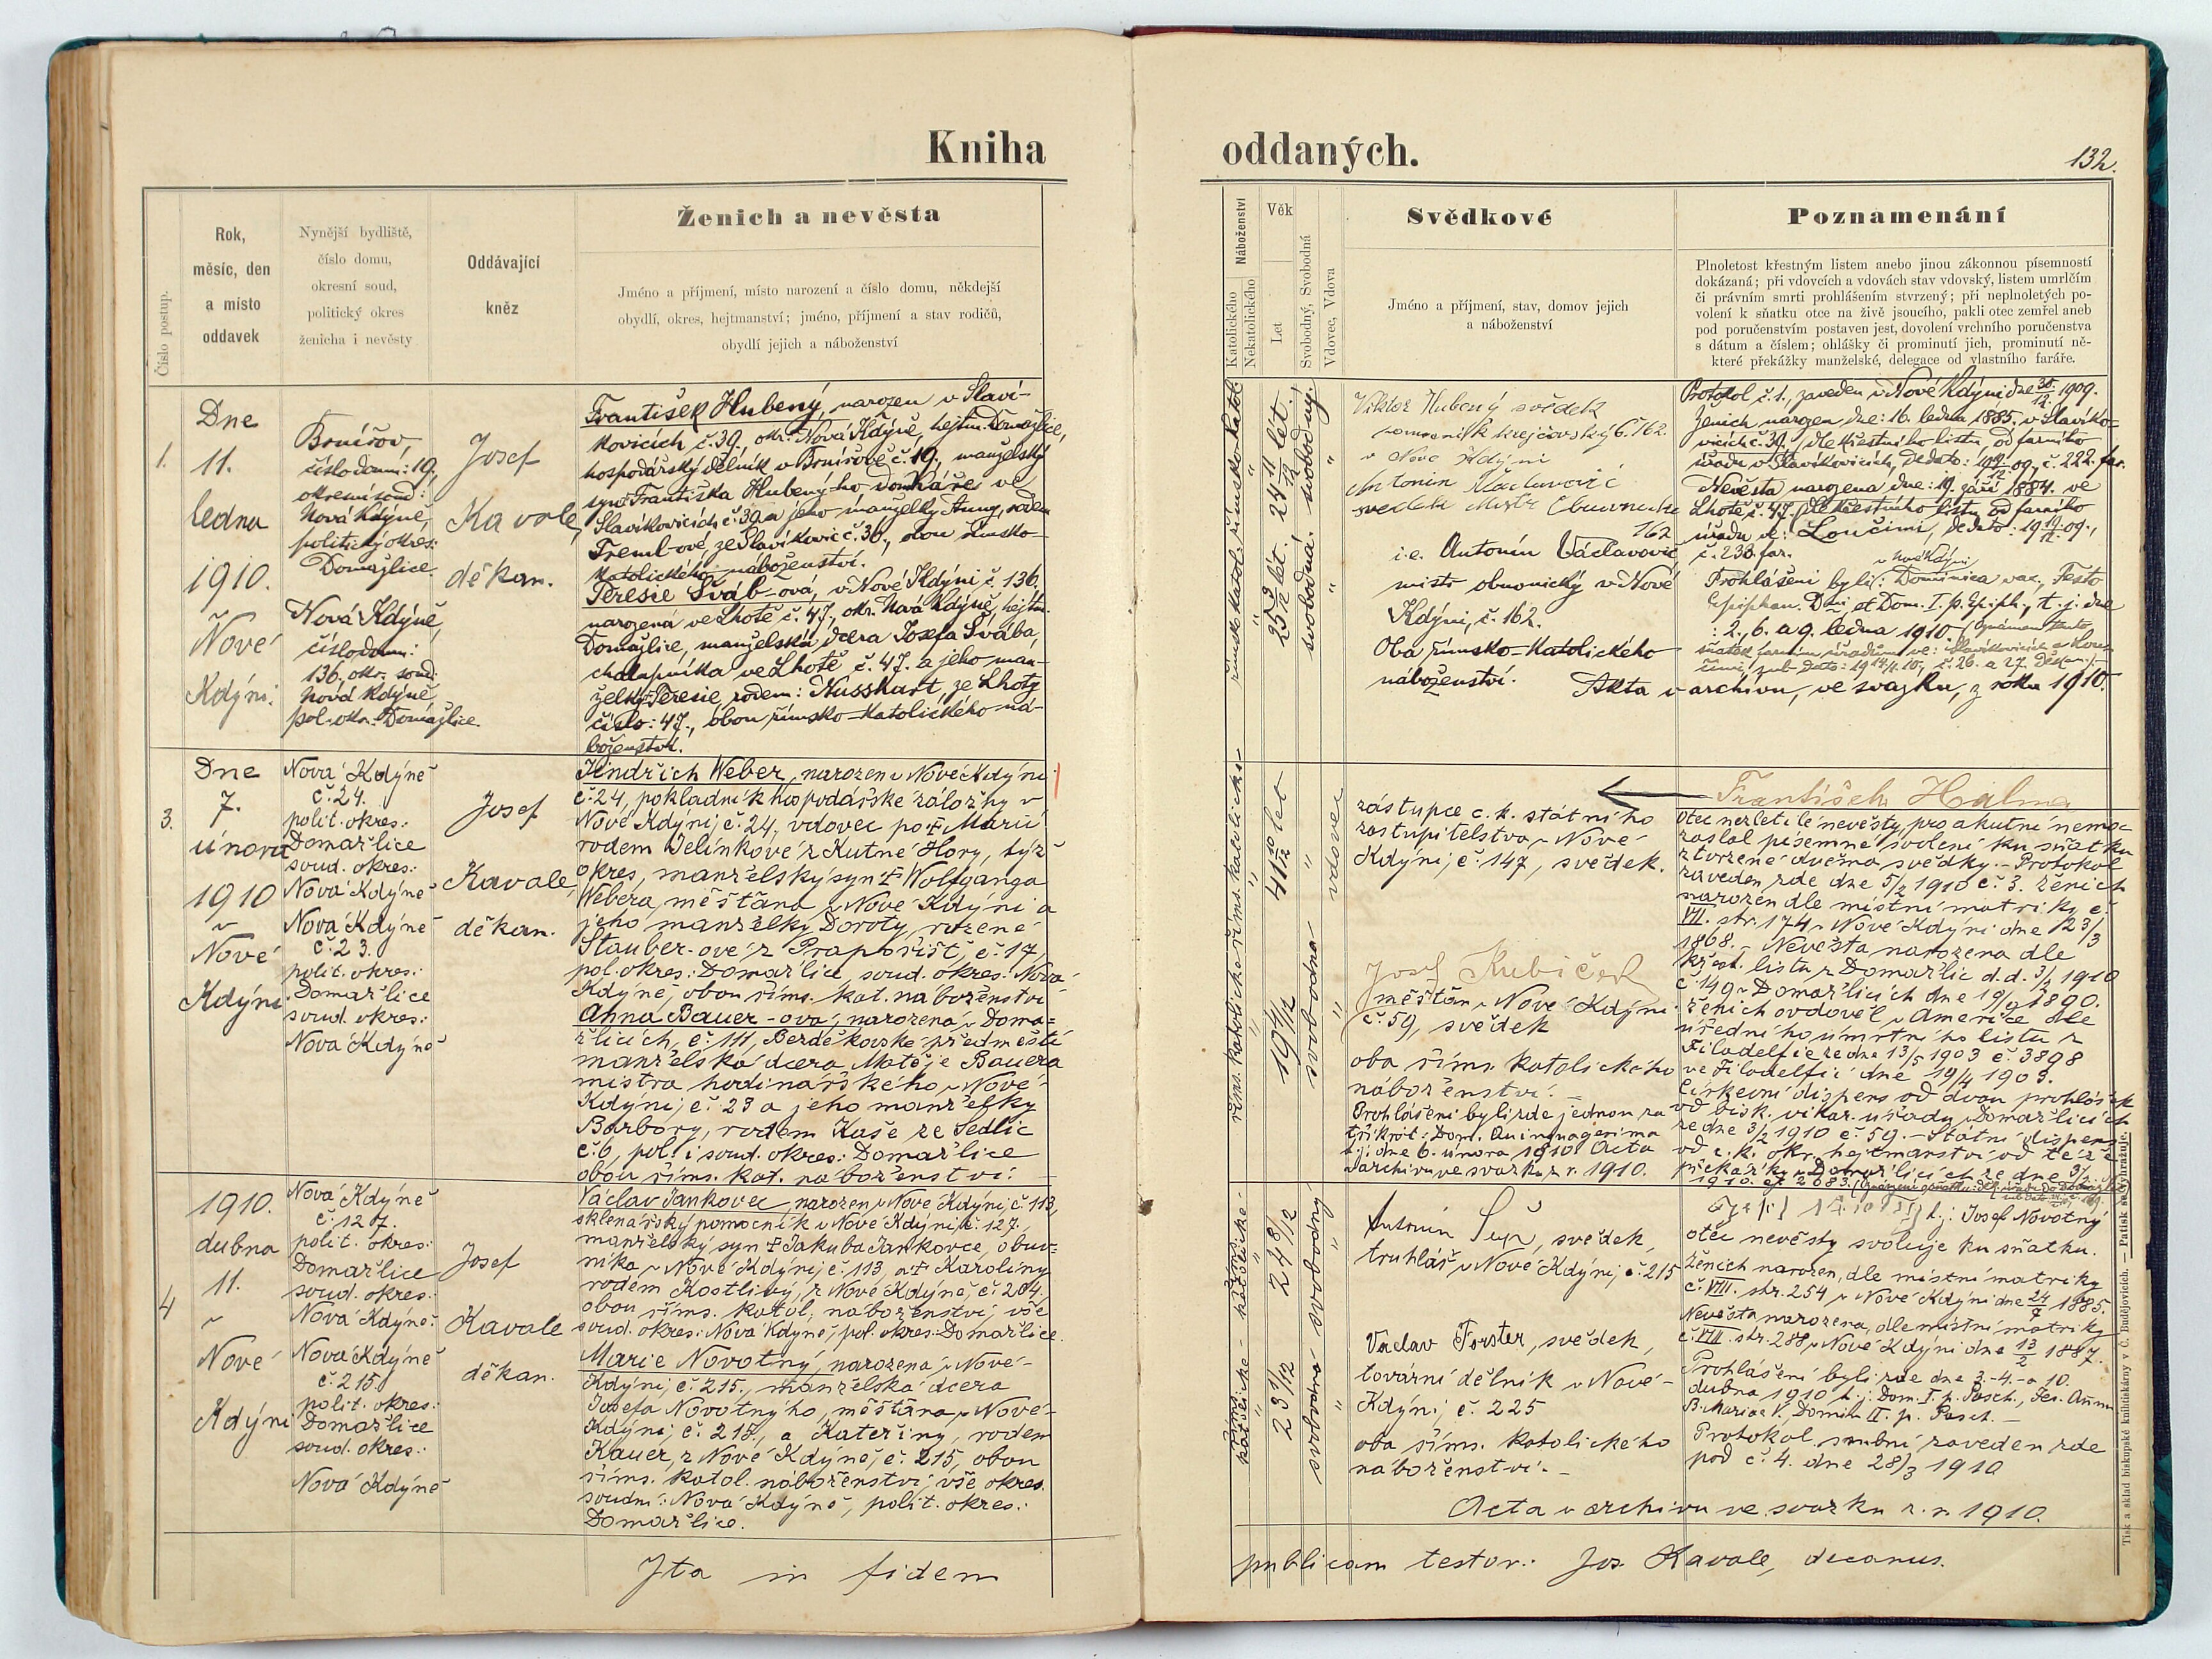 Kniha oddaných.
132.
Číslo postup.
Rok,
měsíc, den
a místo
oddavek
Nynější bydliště,
číslo domu,
okresní soud,
politický okres
ženicha i nevěsty
Oddávající
kněz
Ženich a nevěsta
Jméno a příjmení, místo narození a číslo domu, někdejší
obydlí, okres, hejtmanství; jméno, příjmení a stav rodičů,
obydlí jejich a náboženství
Náboženství
Katolického
Nekatolického
Věk
Let
Svobodný, Svobodná
Vdovec, Vdova
Svědkové
Jméno a příjmení, stav, domov jejich
a náboženství
Poznamenání
Plnoletost křestným listem anebo jinou zákonnou písemností
dokázaná; při vdovcích a vdovách stav vdovský, listem umrlčím
či právním smrti prohlášením stvrzený; při neplnoletých po-
volení k sňatku otce na živě jsoucího, pakli otec zemřel aneb
pod poručenstvím postaven jest, dovolení vrchního poručenstva
s dátum a číslem; ohlášky či prominutí jich, prominutí ně-
které překážky manželské, delegace od vlastního faráře.
1.
Dne
11.
ledna
1910.
v Nové
Kdýni.
Brnířov,
číslo dom.: 19,
okresní soud:
Nová Kdýně,
politický okres:
Domažlice.
Nová Kdýně,
číslo dom.:
136. okr. soud:
Nová Kdýně
pol. okr. Domažlice.
Josef
Kavale,
děkan.
František Hubený, narozen v Slaví-
kovicích č. 39. okr. Nová Kdýně, hejtm. Domažlice,
hospodářský dělník v Brnířově č. 19., manželský
syn Františka Hubený-ho domkáře ve
Slavíkovicích č. 39. a jeho manželky Anny, rodem
Treml-ové, ze Slavíkovic č. 36., obou římsko-
katolického náboženství.
Teresie Šváb-ová, v Nové Kdýni č. 136.
narozená ve Lhotě č. 47, okr. Nová Kdýně, hejtm.
Domažlice, manželská dcera Josefa Švába,
chalupníka ve Lhotě č. 47. a jeho man-
želky Teresie, rodem: Nusshart, ze Lhoty
číslo: 47., obou římsko-katolického ná-
boženství.
římsko-katol.
24 11/12 let.
svobodný.
římsko katol.
25 3/12 let.
svobodná.
Viktor Hubený svědek
pomocník krejčovský č. 162.
v Nové Kdýni
Antonín Václavovič
svědek Mistr Obuvnický
162
i.e. Antonín Václavovič
mistr obuvnický v Nové
Kdýni, č. 162.
Oba římsko-katolického
náboženství.
Protokol č. 1., zaveden v Nové Kdýni dne 30/12. 1909.
Ženich narozen dne: 16. ledna 1885. v Slavíko-
vicích č. 39., dle křestního listu, od farního
úřadu v Slavíkovicích, de dato: 19 /12. 09., č. 222. far.
Nevěsta narozena dne: 19. září 1884. ve
Lhotě č. 47. dle křestního listu od farního
úřadu ve: Loučimi, de dato: 19 19/12. 09.,
č. 230. far.
v Nové Kdýni
Prohlášeni byli: Dominica vac., Festo
Epiphan. Dni et Dom. I. p. Epiph., t. j. dne
: 2., 6. a 9. ledna 1910.
Akta v archivu, ve svazku, z roku 1910.
3.
Dne
7.
února
1910
v
Nové
Kdýni.
Nová Kdýně
č. 24.
polit. okres.:
Domažlice
soud. okres.:
Nová Kdýně
Nová Kdýně
č. 23.
polit. okres.:
Domažlice
soud. okres.:
Nová Kdýně
Josef
Kavale,
děkan.
Jindřich Weber, narozen v Nové Kdýni
č. 24, pokladník hospodářské záložny v
Nové Kdýni, č. 24, vdovec po † Marii
rodem Jelínkové z Kutné Hory, týž
okres, manželský syn † Wolfganga
Webera, měšťana v Nové Kdýni a
jeho manželky Doroty, rozené
Stauber-ové z Prapořišť, č. 17,
pol. okres.: Domažlice, soud. okres.: Nová
Kdýně, obou říms. kat. náboženství
Anna Bauer-ová, narozená v Doma-
žlicích, č. 111, Bezděkovské předměstí
manželská dcera Matěje Bauera
mistra hodinářského v Nové
Kdýni, č. 23 a jeho manželky
Barbory, rodem Kaše ze Sedlic
č. 6, pol. i soud. okres.: Domažlice
obou říms. kat. náboženství.
říms. katolického
41 10/12 let
vdovec
říms. katolického
19 4/12
svobodná
zástupce c. k. státního
zastupitelstva v Nové
Kdýni, č. 147, svědek.
Josef Kubíček
měšťan v Nové Kdýni.
č. 59, svědek
oba říms. katolického
náboženství. –
Prohlášeni byli zde jednou za
třikrát: Dom. Quinquagesima
t. j. dne 6. února 1910. Acta
v archivu ve svazku z r. 1910.
František Halma
Otec nezletilé nevěsty, pro akutní nemoc
zaslal písemné svolení ku sňatku
stvrzené dvěma svědky. – Protokol
zaveden zde dne 5/2 1910 č. 3. Ženich
narozen dle místní matriky č.
VII. str. 174 v Nové Kdýni dne 23/3
1868. – Nevěsta narozena dle
křest. listu z Domažlic d. d. 3/2 1910
č. 149 v Domažlicích dne 19/9 1890.
Ženich ovdověl v Americe dle
úředního úmrtního listu z
Filadelfie ze dne 13/5 1903 č. 3898
ve Filadelfii dne 19/4 1903.
Církevní dispens od dvou prohlášek
od bisk. vikar. úřadu v Domažlicích
ze dne 3/2 1910 č. 59. – Státní dispens
od c. k. okr. hejtmanství od téže
překážky v Domažlicích ze dne 3/2
1910. čj. 2683.
4
1910.
dubna
11.
v
Nové
Kdýni
Nová Kdýně
č. 127.
polit. okres.:
Domažlice
soud. okres.:
Nová Kdýně.
Nová Kdýně
č. 215.
polit. okres.:
Domažlice
soud. okres.:
Nová Kdýně
Josef
Kavale
děkan.
Václav Jankovec, narozen v Nové Kdýni, č. 113,
sklenářský pomocník v Nové Kdýni, č. 127,
manželský syn † Jakuba Jankovce, obuv-
níka v Nové Kdýni, č. 113, a † Karolíny
rodem Kostlivý, z Nové Kdýně, č. 204,
obou říms. katol. náboženství, vše
soud. okres.: Nová Kdýně, pol. okres.: Domažlice.
Marie Novotný, narozená v Nové
Kdýni, č. 215., manželská dcera
Josefa Novotného, měšťana v Nové
Kdýni, č. 215., a Kateřiny, rodem
Kauer, z Nové Kdýně, č. 215, obou
říms. katol. náboženství, vše okres.
soudní: Nová Kdýně, polit. okres.:
Domažlice.
říms. katolické
24 8/12
svobodný
říms. katolické
23 1/12
svobodná
Antonín Šup, svědek,
truhlář v Nové Kdýni, č. 215
Václav Forster, svědek,
tovární dělník v Nové
Kdýni, č. 225
oba říms. katolického
náboženství. –
t. j. Josef Novotný
otec nevěsty svoluje ku sňatku.
Ženich narozen, dle místní matriky
č. VIII. str. 254 v Nové Kdýni dne 24/7 1885.
Nevěsta narozena, dle místní matriky
č. VIII. str. 288, v Nové Kdýni dne 13/2 1887.
Prohlášeni byli zde dne 3. – 4. – a 10.
dubna 1910 t. j. Dom. I. p. Pasch., Fer. Annun.
B. Mariae V., Domin. II. p. Pasch. –
Protokol snubní zaveden zde
pod č. 4. dne 28/3 1910
Acta v archivu ve svazku z. r. 1910.
Ita in fidem publicam testor: Jos. Kavale, decanus.
Tisk a sklad biskupské knihtiskárny v Č. Budějovicích. — Patisk se vyhražuje.